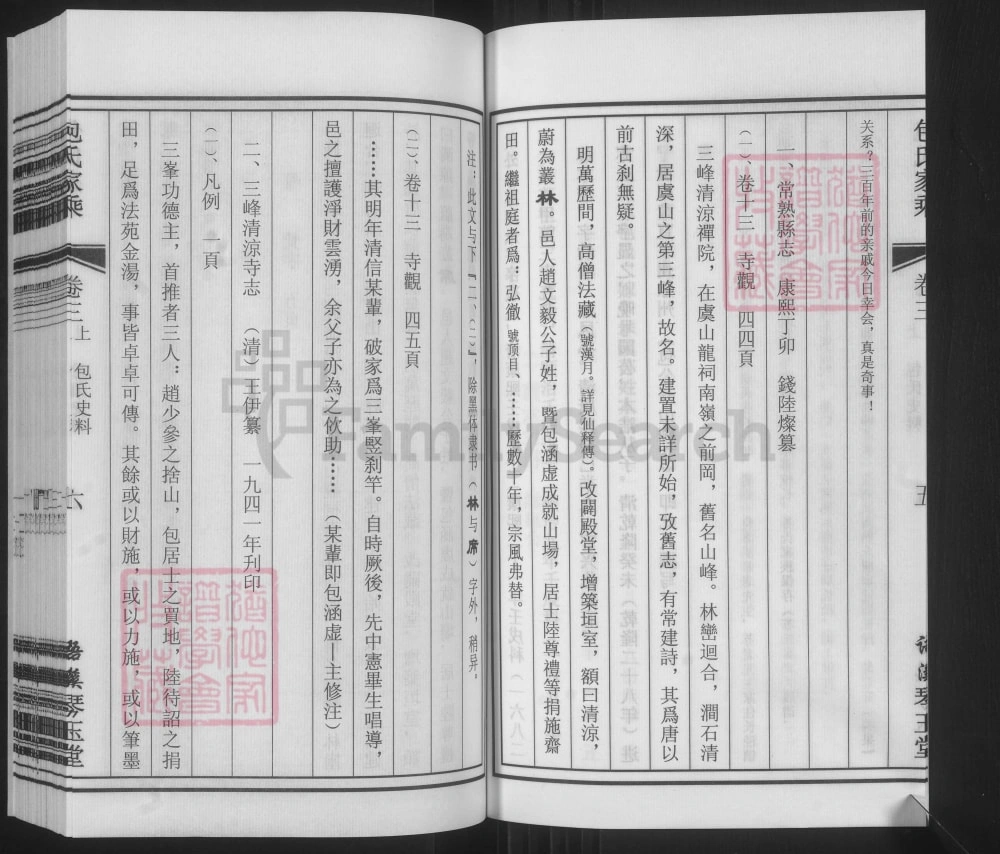 包氏家乘
卷三
五
琴玉堂
关系？三百年前的亲戚今日幸会，真是奇事！
一、常熟縣志　康熙丁卯　錢陸燦纂
（一）、卷十三　寺觀　四四頁
三峰清涼禪院，在虞山龍祠南嶺之前岡，舊名山峰。林巒迴合，澗石清
深，居虞山之第三峰，故名。建置未詳所始，攷舊志，有常建詩，其爲唐以
前古刹無疑。
明萬歷間，高僧法藏（號漢月。詳見仙釋傳）。改闢殿堂，增築垣室，額曰清涼，
蔚為叢林。邑人趙文毅公子姓，暨包涵虛成就山場，居士陸尊禮等捐施齋
田。繼祖庭者爲：弘徹 號頂目、……歷數十年，宗風弗替。
注：此文与下『二、（二）』，除黑体隶书（林与席）字外，稍异。
（二）、卷十三　寺觀　四五頁
……其明年清信某輩，破家爲三峯竪刹竿。自時厥後，先中憲畢生唱導，
邑之擅護淨財雲湧，余父子亦為之佽助……（某輩即包涵虛—主修注）
二、三峰清涼寺志　（清）王伊纂　一九四一年刊印
（一）、凡例　一頁
三峯功德主，首推者三人：趙少參之捨山，包居士之買地，陸待詔之捐
田，足爲法苑金湯，事皆卓卓可傳。其餘或以財施，或以力施，或以筆墨
包氏家乘
卷三 上　包氏史料
六
琴玉堂
FamilySearch